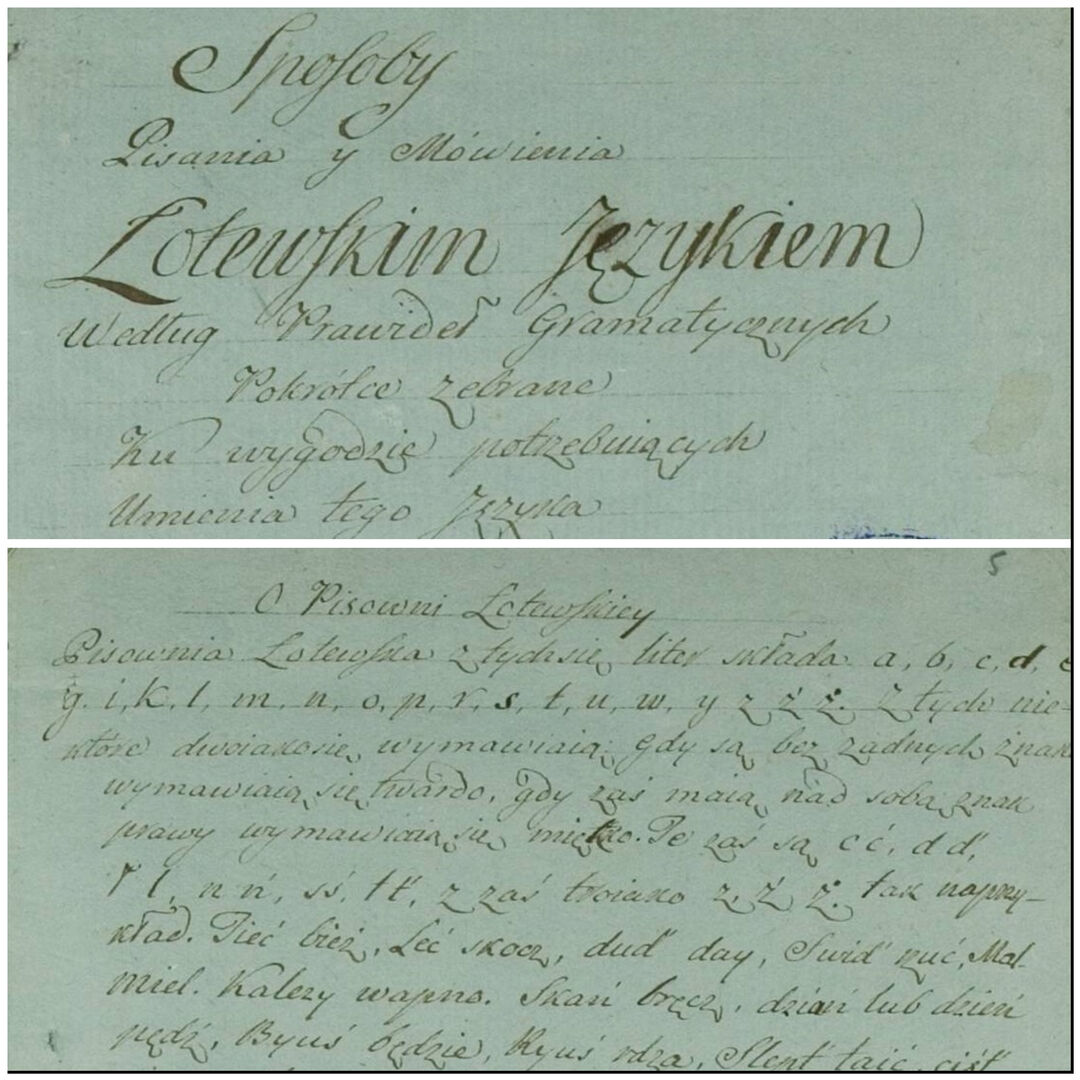 Sposoby
Pisania y Mówienia
Łotewskim Językiem
Według Prawideł Gramatycznych
Pokrótce zebrane
Ku wygodzie potrzebuiących
Umienia tego Języka
5
O Pisowni Łotewskiey
Pisownia Łotewska z tych się liter składa a, b, c, d, e
g. i, k, l, m, n, o, p, r, s, t, u, w, y z ź ż. Z tych nie-
które dwoiako się wymawiaią: gdy są bez żadnych znak
wymawiaią się twardo, gdy zaś maią nad sobą znak
prawy wymawiaią się miętko. Te zaś są c ć, d d',
l, n ń, s ś, t t', z zaś troiako z. ź ż. tak naprzy-
kład. Tieć bież, Leć skocz, dud' day, Swid' rzuć, Mal-
miel. Kalezy wapno. Skań bręczy, dzień lub dzień
pędź, Byuś będzie, Ryuś rdza, Slept' taić, cist'